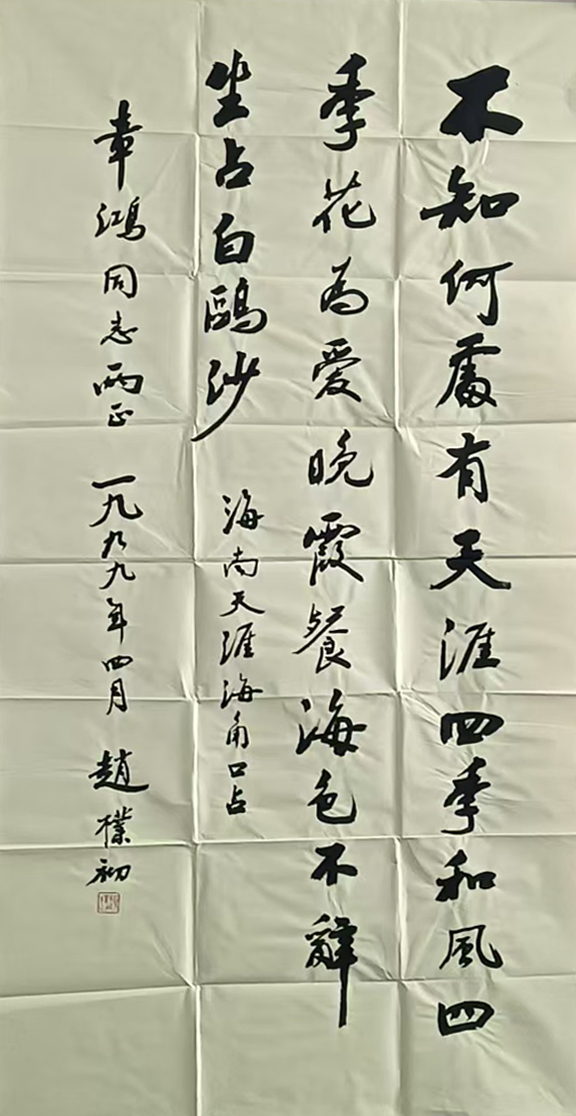 不知何處有天涯四季和風四
季花為愛晚霞餐海色不辭
坐占白鷗沙
海南天涯海角口占
章鴻同志兩正 一九九九年四月 趙樸初